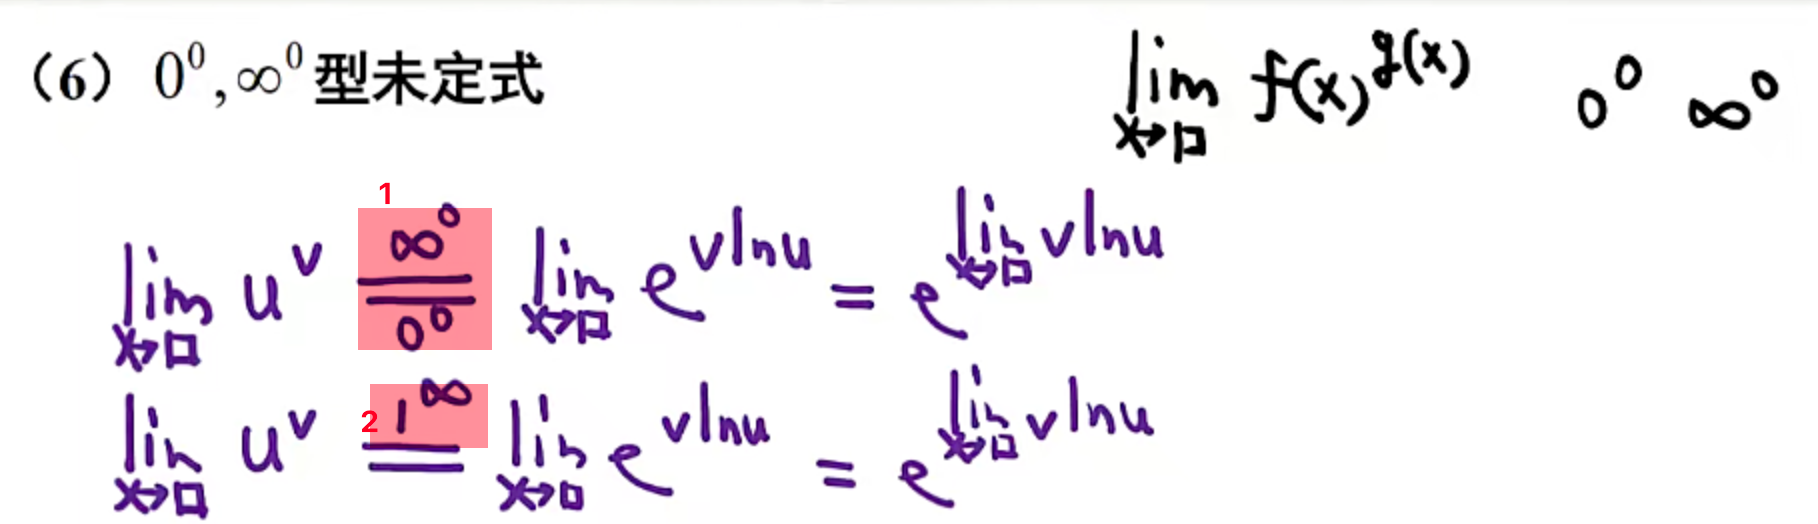 （6） 0⁰,∞⁰ 型未定式 lim x→□ f(x)^g(x) 0⁰ ∞⁰
1
lim x→□ u^v ∞⁰ = 0⁰ lim x→□ e^vlnu = e^lim x→□ vlnu
2
lim x→□ u^v 1^∞ = lim x→□ e^vlnu = e^lim x→□ vlnu